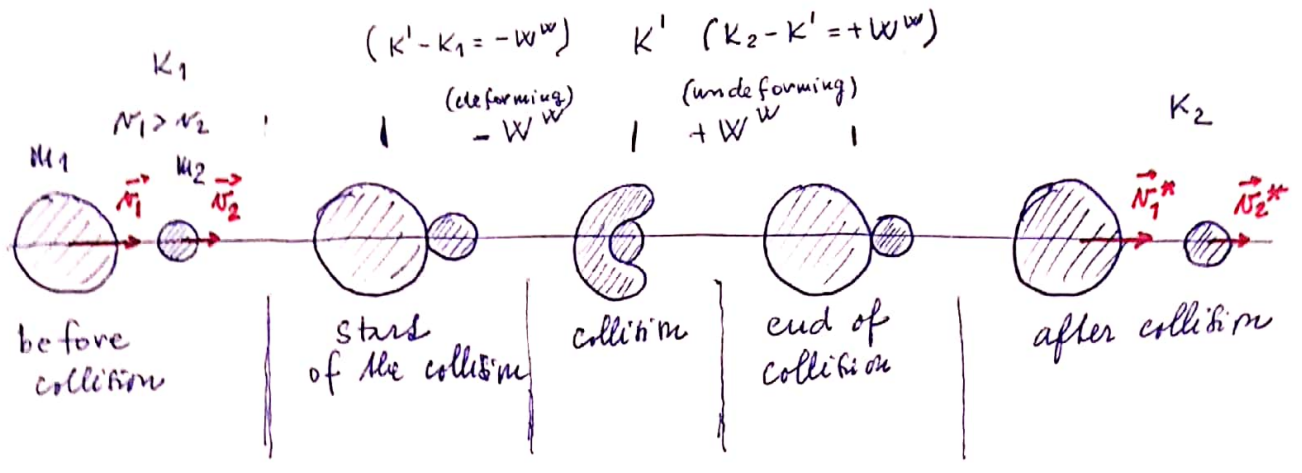 (K' - K₁ = - Wᵂ) K' (K₂ - K' = + Wᵂ)
K₁
(deforming) (undeforming)
K₂
v₁ > v₂
- Wᵂ + Wᵂ
m₁ m₂
v⃗₁ v⃗₂ v⃗₁* v⃗₂*
before
collision
start
of the collision
collision
end of
collision
after collision